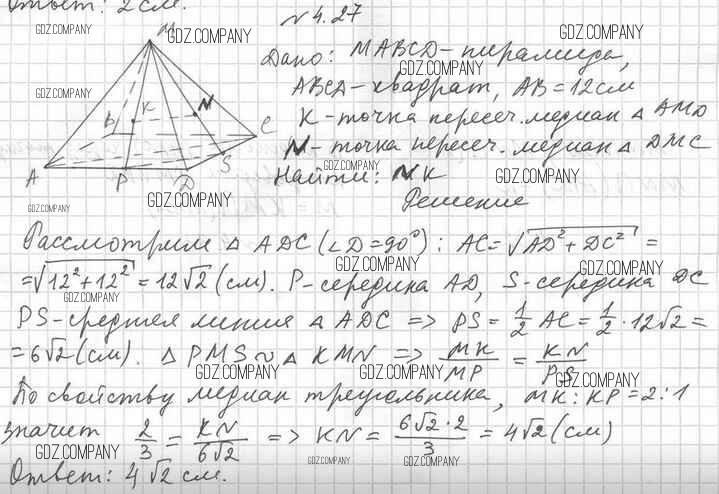 Ответ: 2 см.
N 4.27
GDZ.COMPANY
M
GDZ.COMPANY
GDZ.COMPANY
Дано: MABCD - пирамида,
GDZ.COMPANY
ABCD - квадрат, AB = 12 см
GDZ.COMPANY
K - точка пересеч. медиан △ AMD
N - точка пересеч. медиан △ DMC
Найти: NK
GDZ.COMPANY
GDZ.COMPANY
B
K
N
C
S
A
P
D
GDZ.COMPANY
GDZ.COMPANY
Решение
GDZ.COMPANY
Рассмотрим △ ADC (∠D = 90°): AC = √AD² + DC² =
GDZ.COMPANY
GDZ.COMPANY
= √12² + 12² = 12√2 (см). P - середина AD, S - середина DC
GDZ.COMPANY
GDZ.COMPANY
PS - средняя линия △ ADC => PS = 1/2 AC = 1/2 · 12√2 =
= 6√2 (см). △ PMS ~ △ KMN => MK/MP = KN/PS
GDZ.COMPANY
GDZ.COMPANY
GDZ.COMPANY
По свойству медиан треугольника, MK : KP = 2 : 1
значит 2/3 = KN/6√2 => KN = 6√2 · 2/3 = 4√2 (см)
GDZ.COMPANY
GDZ.COMPANY
GDZ.COMPANY
Ответ: 4√2 см.